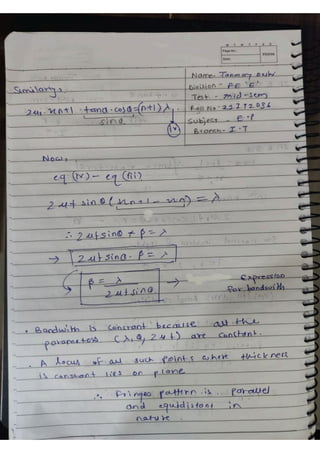 Page No.
Date
Similarly,
Name:
Division - FE "E"
Test - mid-sem
Roll No - 
Subject - E.P
Branch - I.T
2u. xn+1 . tanθ . cosθ = (n+1) λ
sinθ
(iv)
Now,
eq (iv) - eq (iii)
2 ut sinθ (xn+1 - xn) = λ
∴ 2ut sinθ ≠ β = λ
→ 2ut sinθ . β = λ
β = λ / 2ut sinθ → Expression for bandwith
• Bandwith is constant because all the
parameters (λ, θ, 2ut) are constant.
• A locus of all such points where thickness
is constant lies on plane
∴ Fringes pattern is parallel
and equidistant in
nature.